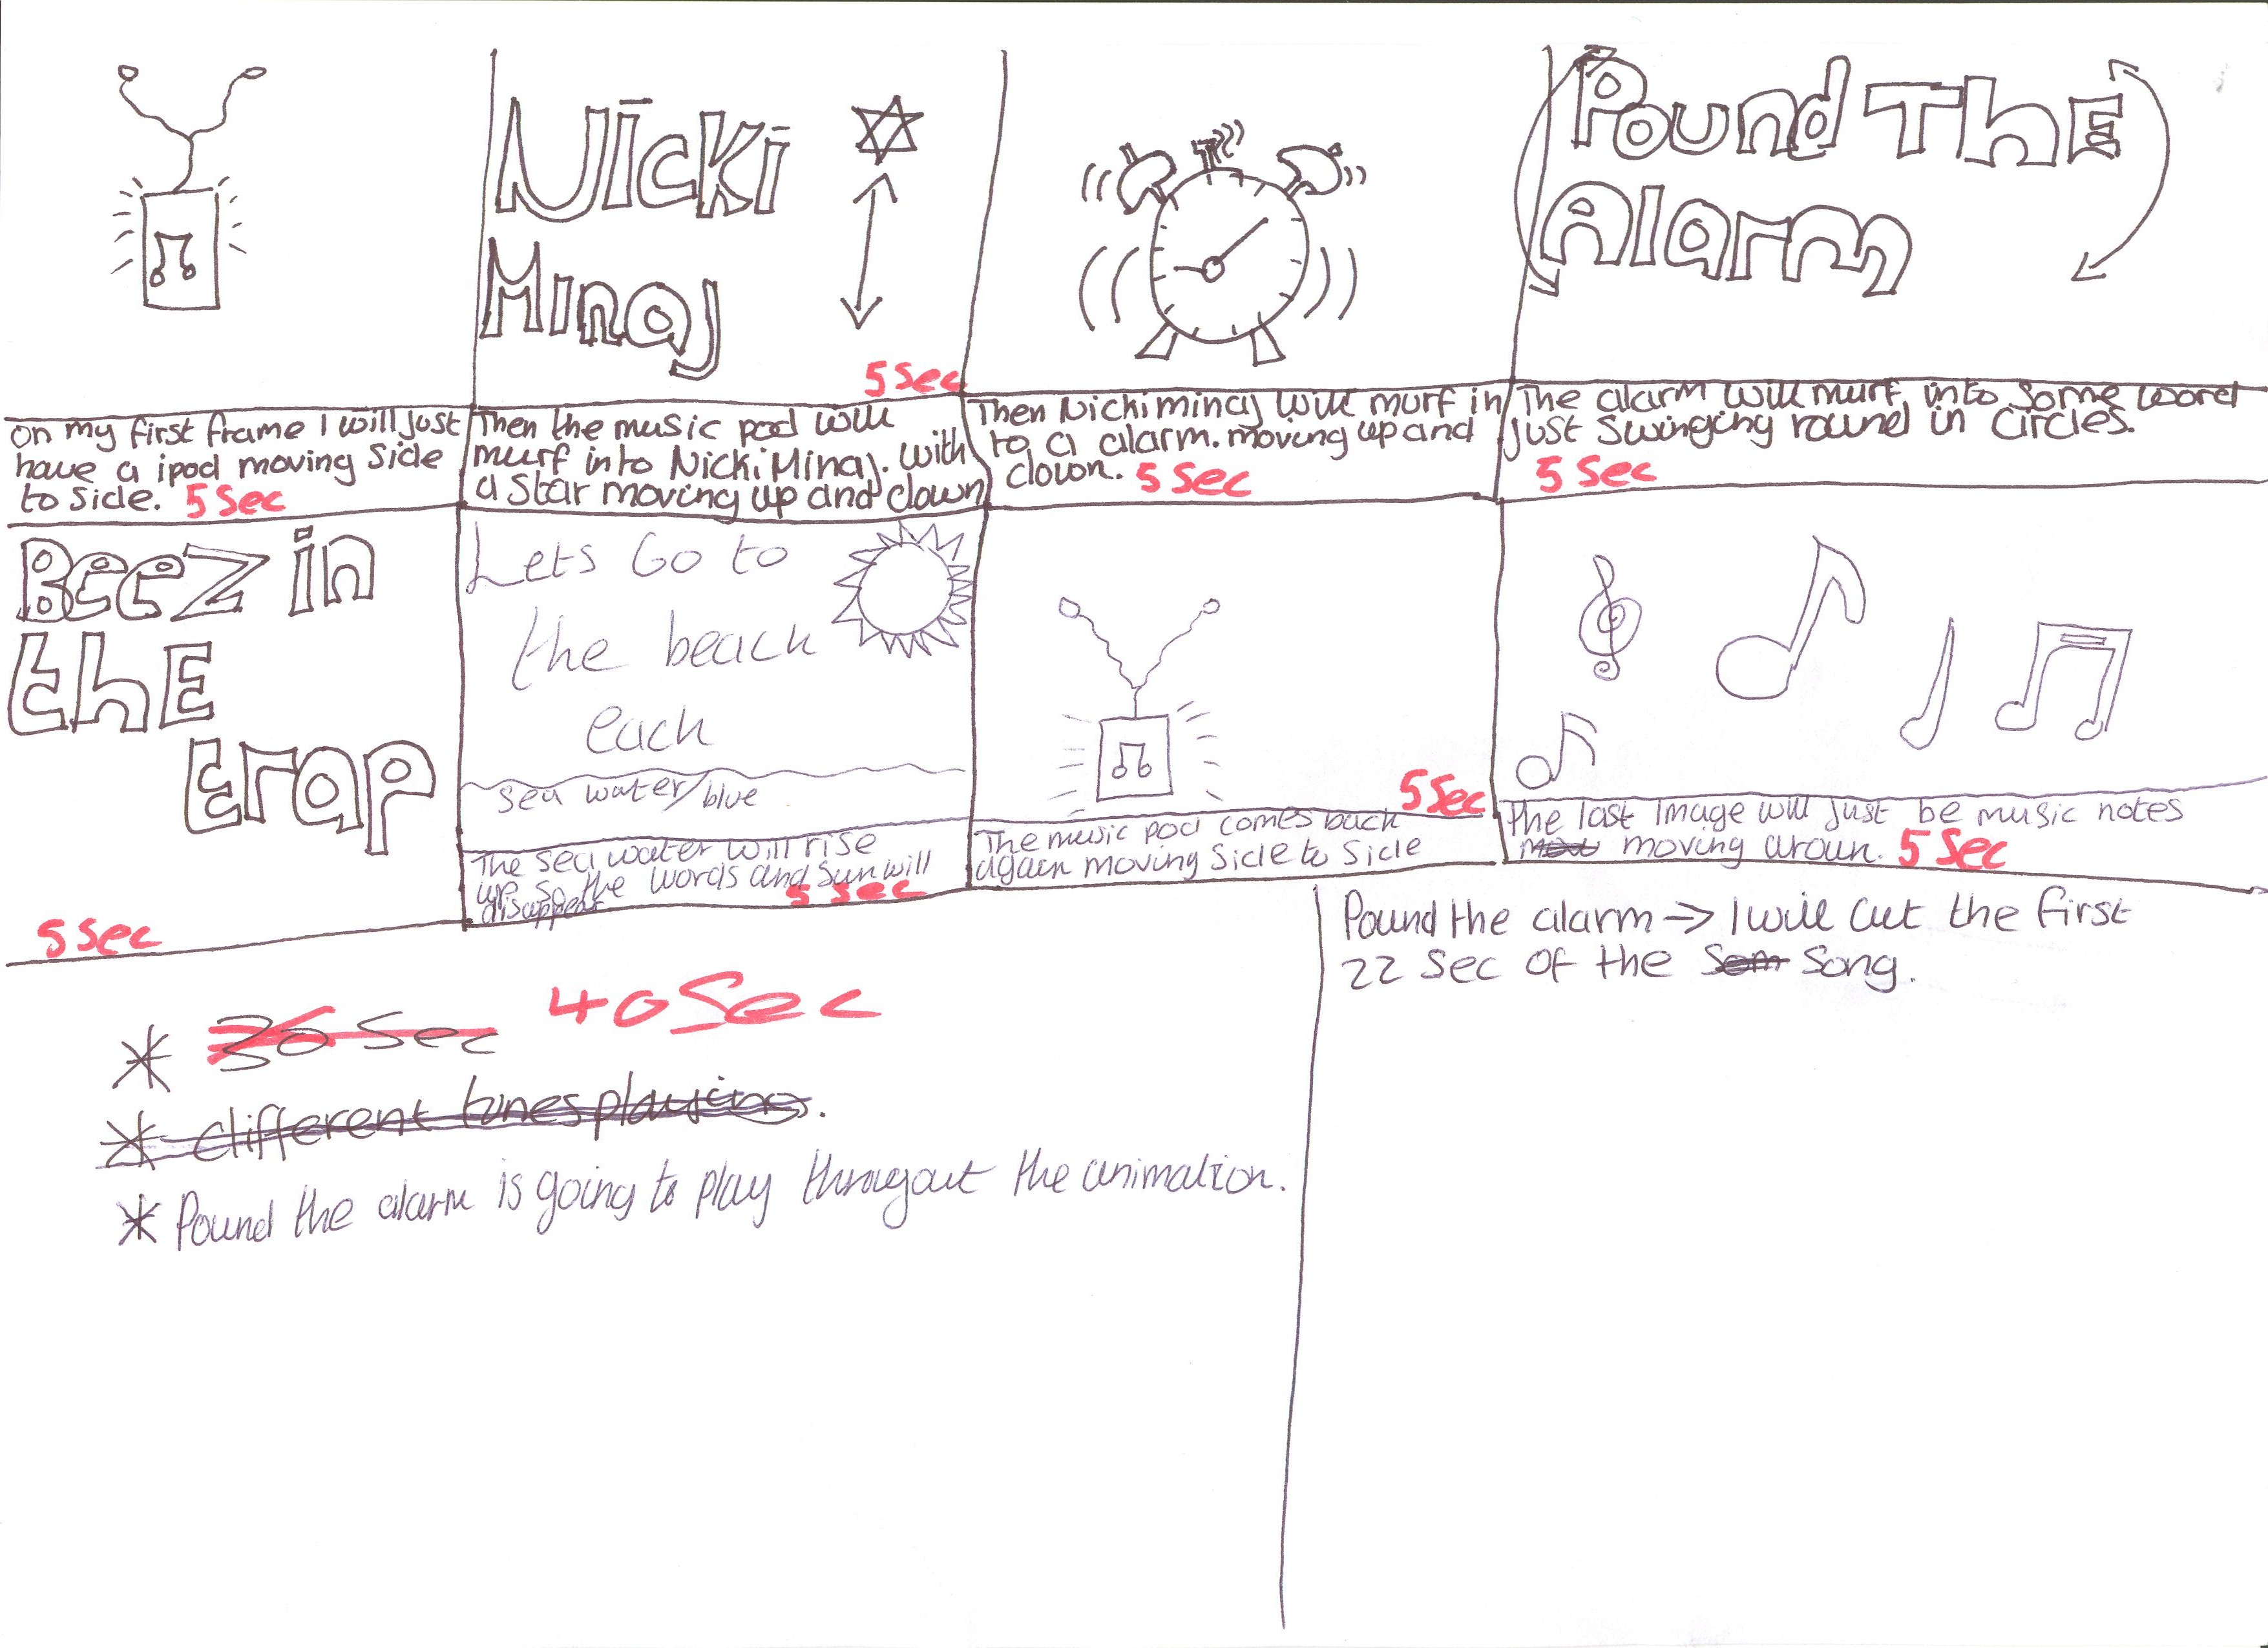 Nicki
Minaj
5 Sec
Pound The
Alarm
on my first frame I will just
have a ipod moving side
to side. 5 Sec
Then the music pod will
murf into Nicki Minaj. with
a star moving up and down
Then Nicki minaj will murf in
to a alarm. moving up and
down. 5 Sec
The alarm will murf into some word
just swinging round in circles.
5 Sec
Beez in
the
trap
5 Sec
Lets Go to
the beach
each
sea water/blue
The sea water will rise
up so the words and sun will
disappear 5 sec
5 Sec
The music pod comes back
again moving side to side
The last image will just be music notes
moving aroun. 5 Sec
* 30 Sec 40 Sec
* different tunes playing.
* Pound the alarm is going to play througout the animation.
Pound the alarm → I will cut the first
22 sec of the Som Song.